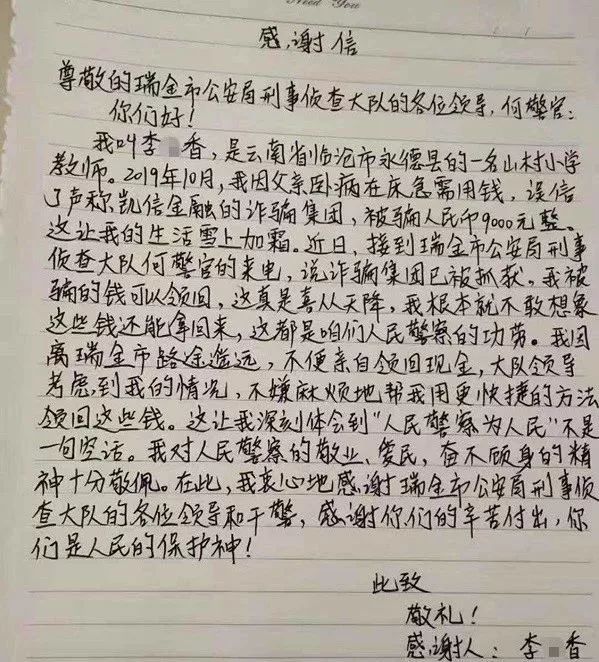 Need You
感谢信
尊敬的瑞金市公安局刑事侦查大队的各位领导,何警官:
你们好!
我叫李香,是云南省临沧市永德县的一名山村小学
教师。2019年10月,我因父亲卧病在床急需用钱,误信
了声称凯信金融的诈骗集团,被骗人民币9000元整。
这让我的生活雪上加霜。近日,接到瑞金市公安局刑事
侦查大队何警官的来电,说诈骗集团已被抓获。我被
骗的钱可以领回,这真是喜从天降,我根本就不敢想象
这些钱还能拿回来,这都是咱们人民警察的功劳。我因
离瑞金市路途遥远,不便亲自领回现金,大队领导
考虑到我的情况,不嫌麻烦地帮我用更快捷的方法
领回这些钱。这让我深刻体会到“人民警察为人民”不是
一句空话。我对人民警察的敬业、爱民,奋不顾身的精
神十分敬佩。在此,我衷心地感谢瑞金市公安局刑事侦
查大队的各位领导和干警,感谢你们的辛苦付出,你
们是人民的保护神!
此致
敬礼!
感谢人:李香